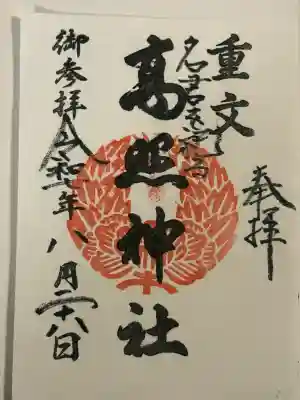 奉拝
重文
名君
髙照神社
御参拝 令和七年八月二十八日